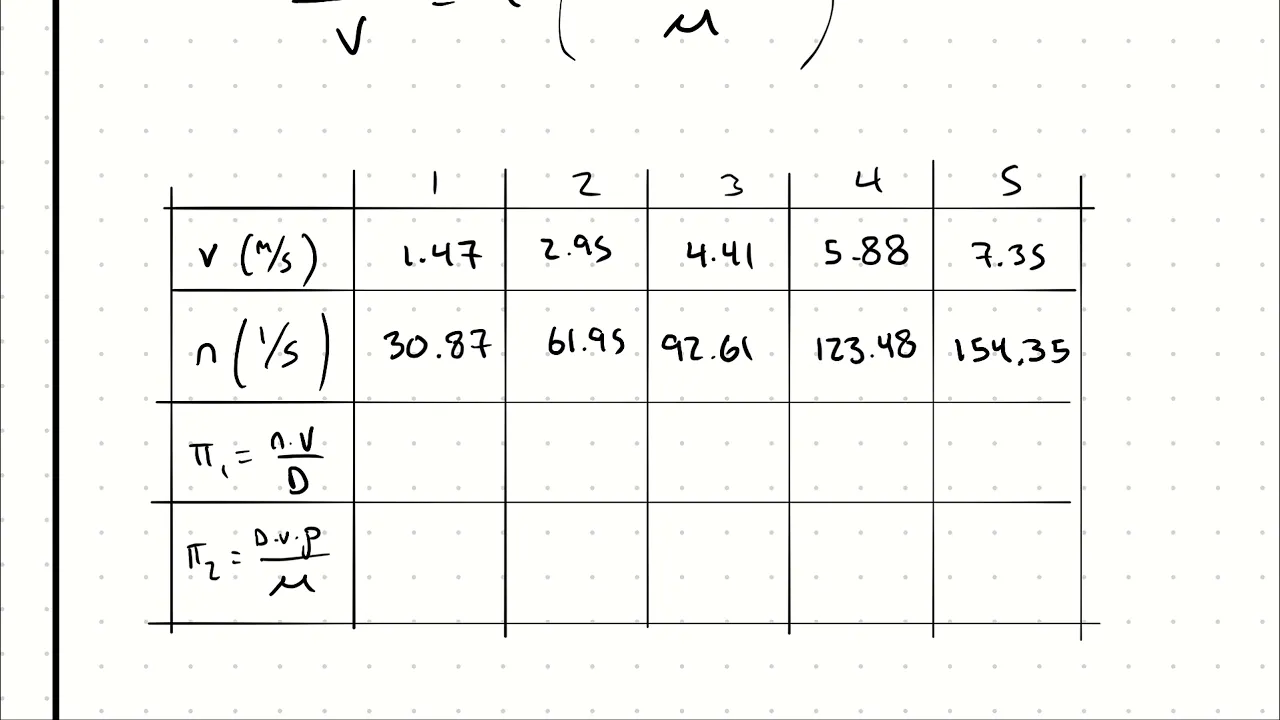 v
μ
1 2 3 4 5
v (m/s) 1.47 2.95 4.41 5.88 7.35
n (1/s) 30.87 61.95 92.61 123.48 154.35
π₁ = n.v/D
π₂ = D.v.ρ/μ